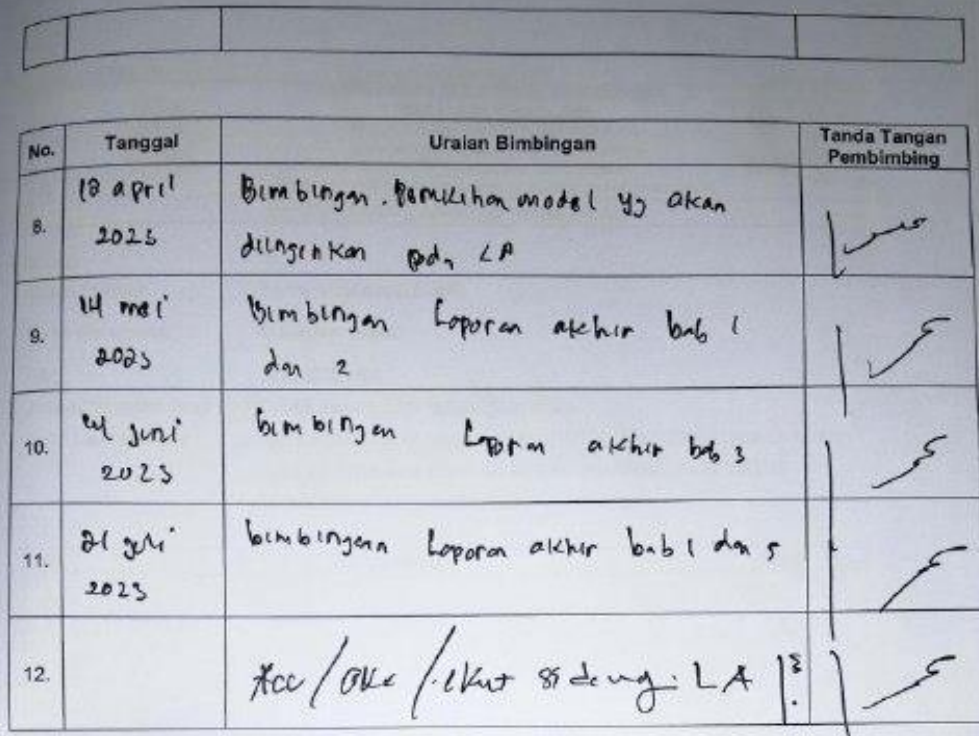 No. Tanggal Uraian Bimbingan Tanda Tangan
Pembimbing
8. 18 april Bimbingan. Pemilihan model yg akan
2023 diinginkan pada LA
9. 14 mei Bimbingan Laporan akhir bab 1
2023 dan 2
10. juni bimbingan Laporan akhir bab 3
2023
11. 21 juli bimbingan Laporan akhir bab 1 dan 5
2023
12. Acc/Oke/ikut sidang LA